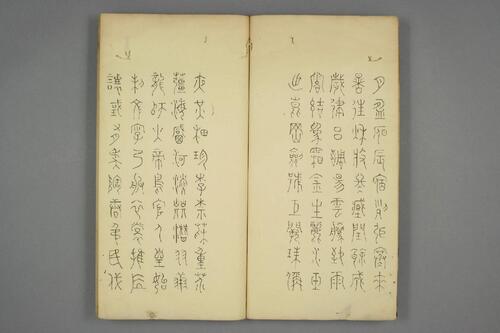 月盈昃辰宿列張寒來
暑往秋收冬藏閏餘成
歲律呂調陽雲騰致雨
露結為霜金生麗水玉
出崑岡劍號巨闕珠稱
夜光果珍李柰菜重芥
薑海鹹河淡鱗潛羽翔
龍師火帝鳥官人皇始
制文字乃服衣裳推位
讓國有虞陶唐弔民伐